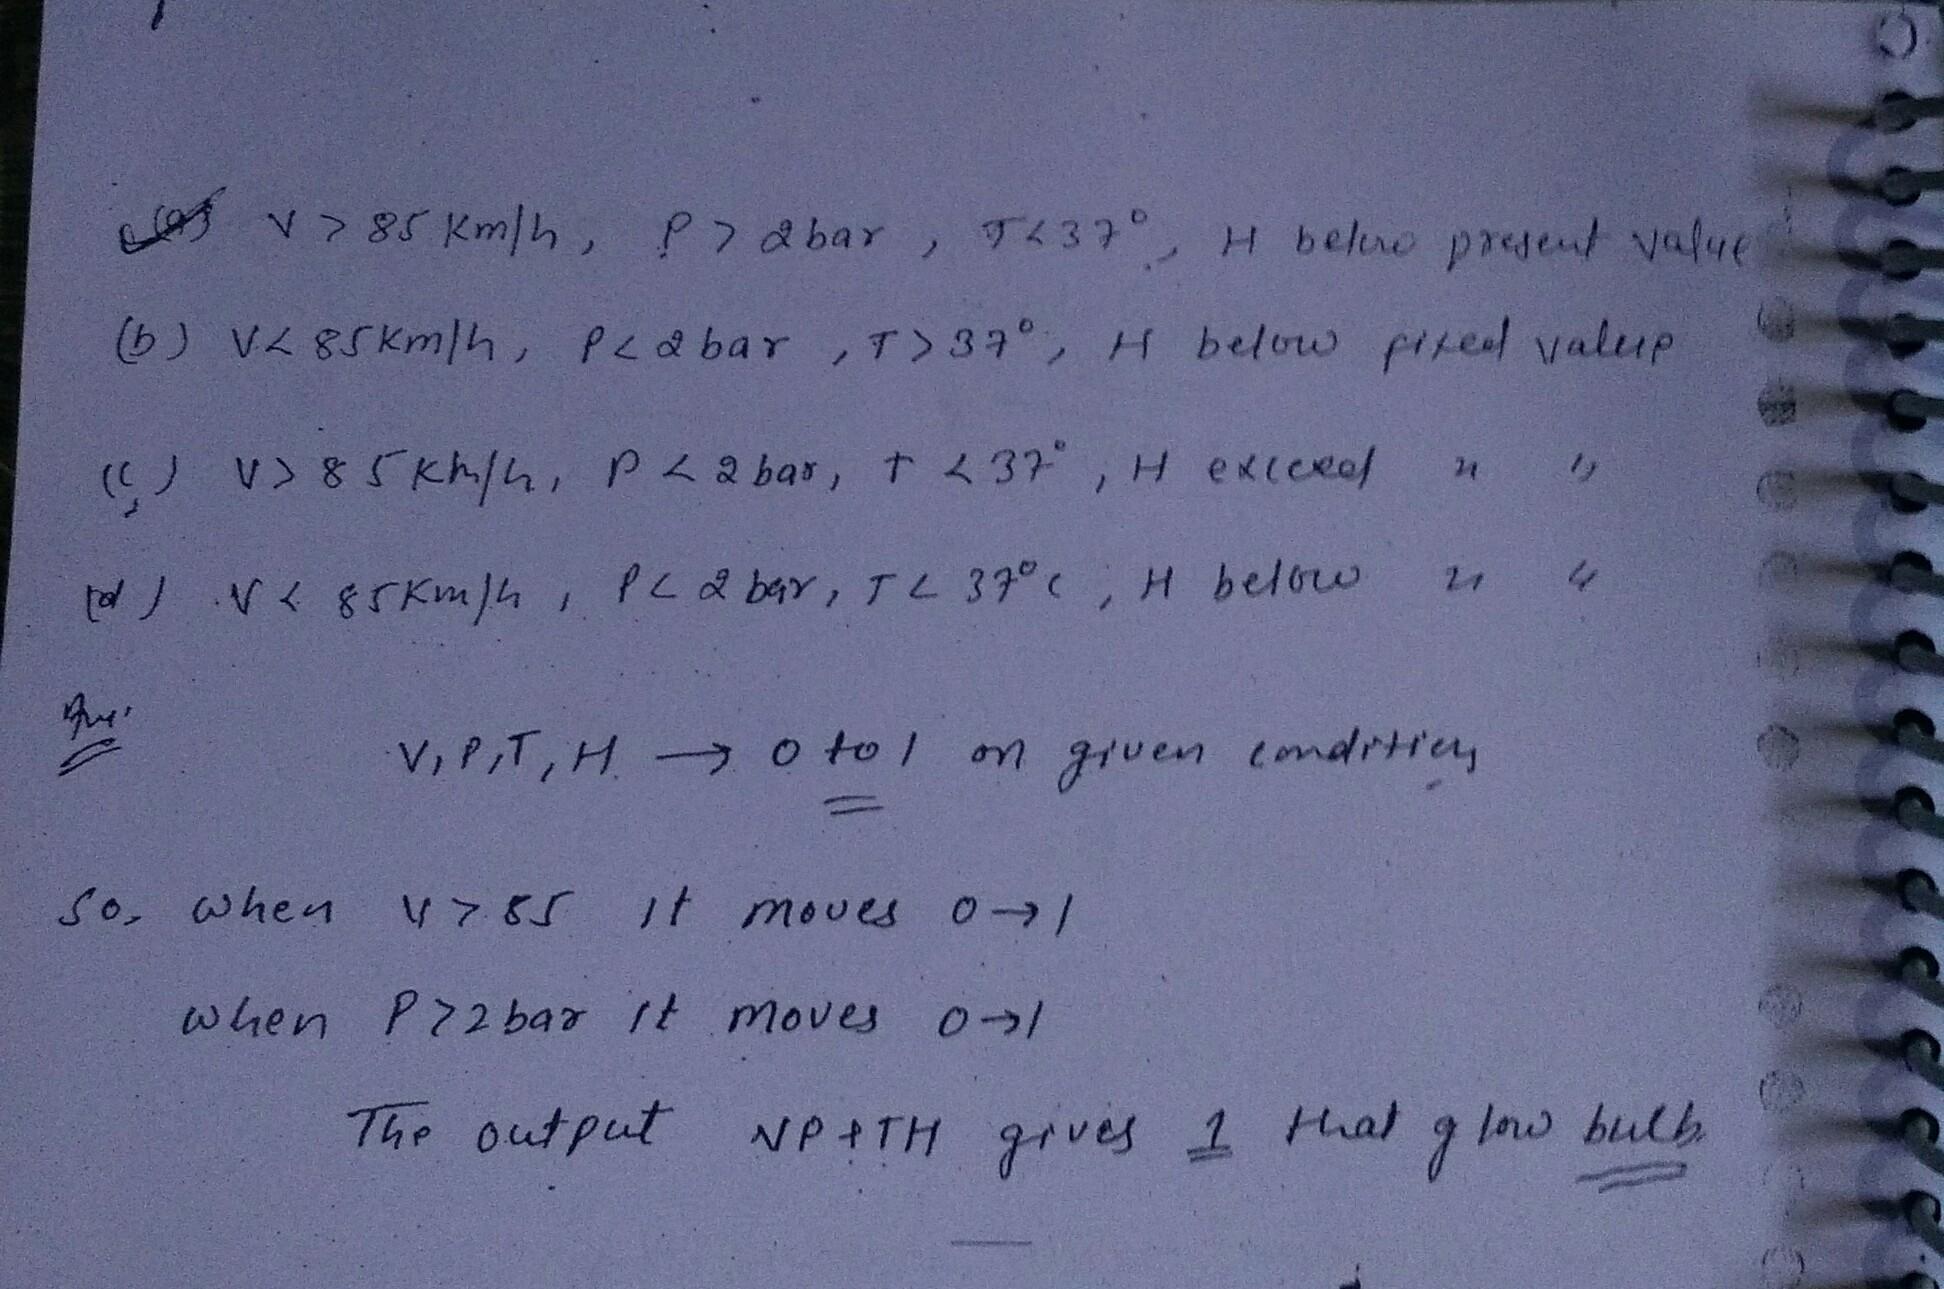 (a) V > 85 Km/h, P > 2 bar, T < 37°, H below present value
(b) V < 85 Km/h, P < 2 bar, T > 37°, H below fixed value
(c) V > 85 Km/h, P < 2 bar, T < 37°, H exceed " "
(d) V < 85 Km/h, P < 2 bar, T < 37°C, H below " "
V, P, T, H → 0 to 1 on given condition
So, when V > 85 it moves 0→1
when P > 2 bar it moves 0→1
The output VP + TH gives 1 that glow bulb